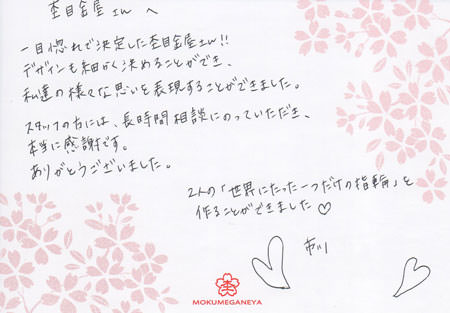 杢目金屋さん へ
一目惚れで決定した杢目金屋さん!!
デザインも細かく決めることができ、
私達の様々な思いを表現することができました。
スタッフの方には、長時間相談にのっていただき、
本当に感謝です。
ありがとうございました。
2人の「世界にたった一つだけの指輪」を
作ることができました♡
MOKUMEGANEYA